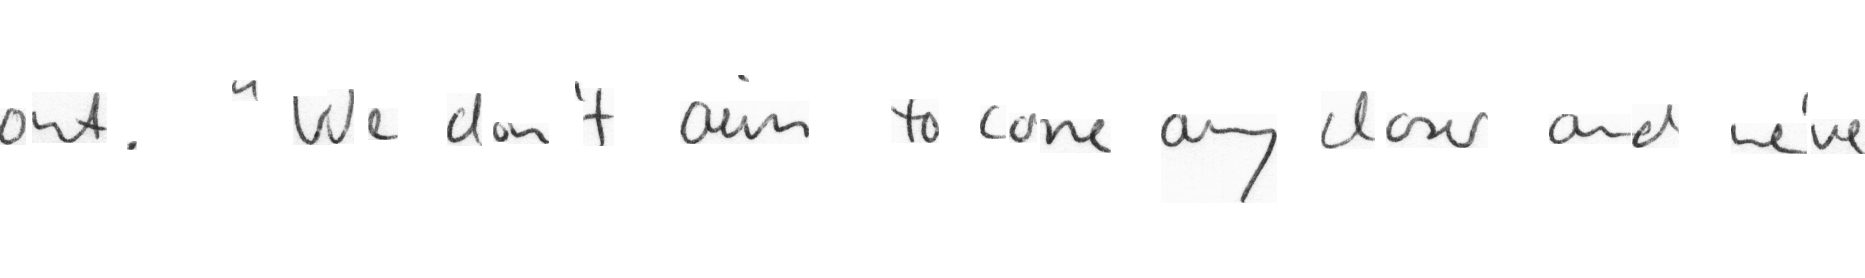 out. "We don't aim to come any closer and we've